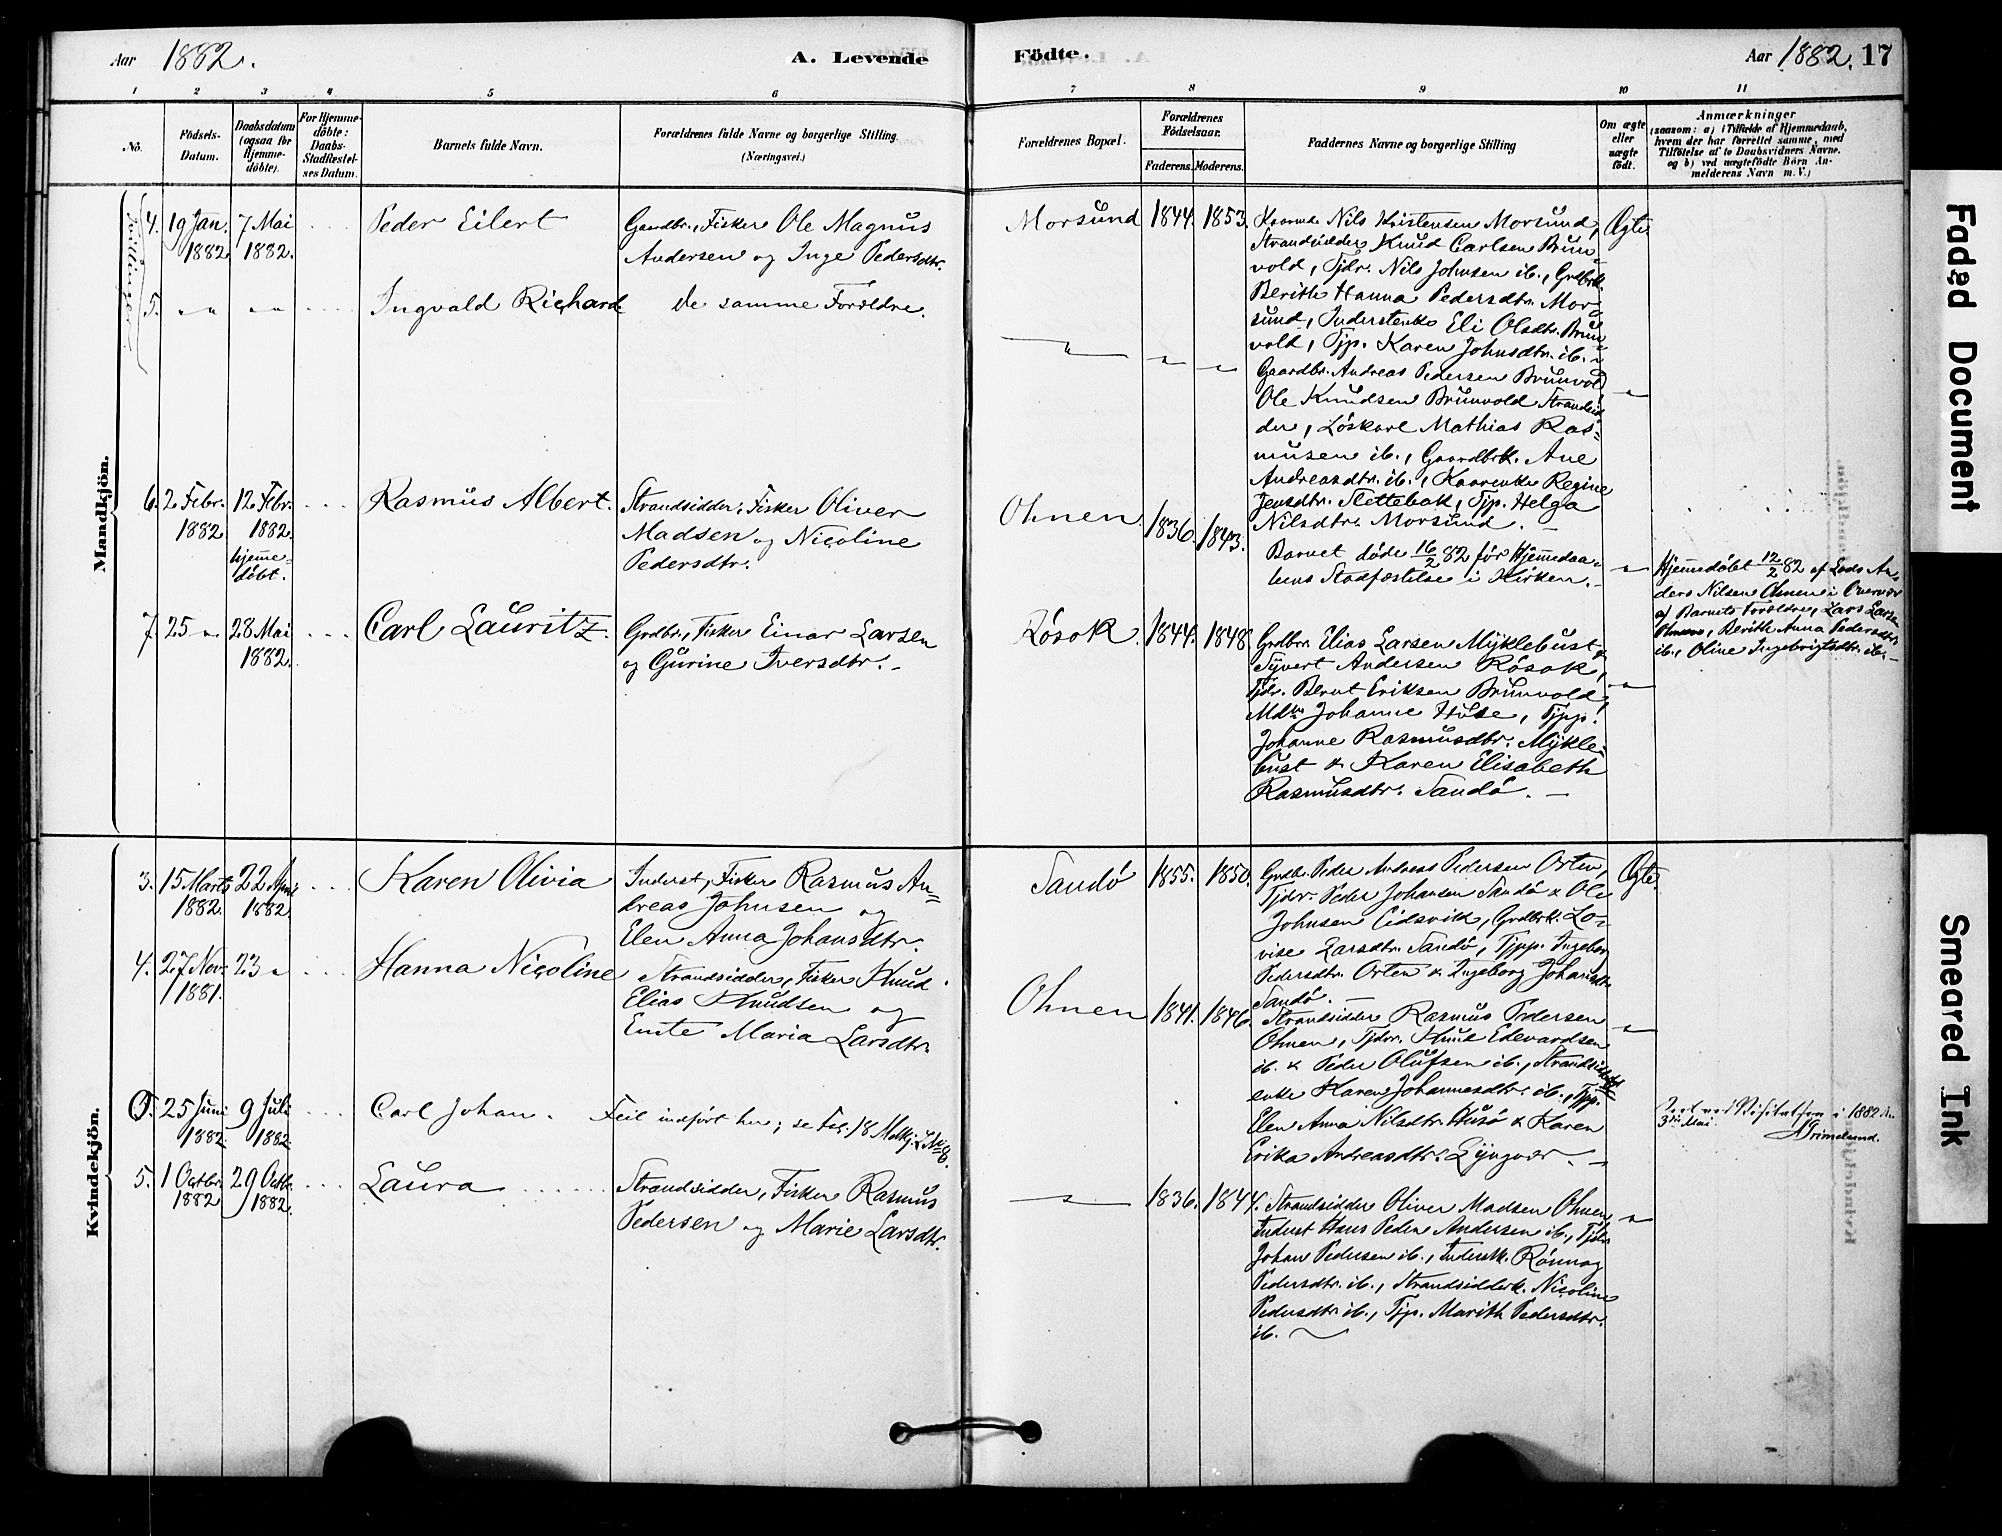 Aar 1882.
A. Levende
Födte.
Aar 1882. 17
1 2 3 4 5 6 7 8 9 10 11
No.
Födsels-
Datum.
Daabsdatum
(ogsaa for
Hjemme-
döbte).
For Hjemme-
döbte:
Daabs-
Stadfæstel-
ses Datum.
Barnets fulde Navn.
Forældrenes fulde Navne og borgerlige Stilling.
(Næringsvei.)
Forældrenes Bopæl.
Forældrenes
Födselsaar.
Faderens. Moderens.
Faddernes Navne og borgerlige Stilling
Om ægte
eller
uægte
födt.
Anmærkninger
(saasom: a) i Tilfælde af Hjemmedaab,
hvem der har forrettet samme, med
Tilföielse af to Daabsvidners Navne,
og b) ved uægtefödte Börn An-
melderens Navn m. V.)
Mandkjön.
Tvillinger
4. 19 Jan. 1882 7 Mai 1882.
Peder Eilert
Gaardbr., Fisker Ole Magnus
Andersen og Inge Pedersdtr.
Morsund 1844. 1853.
Kaarmd. Nils Kristensen Morsund,
Strandsidder Knud Carlsen Brun-
vold, Tjdr. Nils Johnsen ib., Grdbrk.
Berith Hanna Pedersdtr. Mor-
sund, Inderstenke Eli Olsdtr. Brun-
vold, Tjp. Karen Johnsdtr. ib. -
Ægte
5. " "
Ingvald Richard
De samme Forældre.
Gaardbr. Andreas Pedersen Brunvold
Ole Knudsen Brunvold Strandsid-
der, Löskarl Mathias Ras-
musen ib., Gaardbrk. Ane
Andreasdtr. ib., Kaarenke Regine
Jensdtr. Slettebak, Tjp. Helga
Nilsdtr. Morsund.
6. 2 Febr. 1882 12 Febr. 1882. hjemme-
döbt.
Rasmus Albert.
Strandsidder, Fisker Oliver
Madsen og Nicoline
Pedersdtr.
Ohnen 1836. 1843.
Barnet døde 16/2 82 før Hjemmedaa-
bens Stadfæstelse i Kirken. -
Hjemmedøbt 12/2 82 af Lods An-
ders Nilsen Ohnen i Overvær
af Barnets Forældre, Lars Larsen
Ohnen, Berith Anna Pedersdtr.
ib., Oline Ingebrigtsdtr. ib. -
7. 25 " 28 Mai 1882.
Carl Lauritz.
Grdbr., Fisker Einar Larsen
og Gurine Iversdtr. -
Røsok. 1844. 1848.
Grdbr. Elias Larsen Myklebust &
Syvert Andersen Røsok,
Tjdr. Bernt Eriksen Brunvold,
Mdk. Johanne Huse, Tjpp.
Johanne Rasmusdtr. Mykle-
bust & Karen Elisabeth
Rasmusdtr. Sandö. -
Kvindekjön.
3. 15 Marts 1882. 22 April 1882
Karen Olivia
Inderst, Fisker Rasmus An-
dreas Johnsen og
Elen Anna Johansdtr.
Sandö 1855. 1850.
Grdb. Peder Andreas Pedersen Orten,
Tjdr. Peder Johansen Sandö & Ole
Johnsen Eidsvik, Grdbrk. Lo-
vise Larsdtr. Sandö, Tjpp. Ingeborg
Pedersdtr. Orten & Ingeborg Johansdtr.
Sandö. -
Ægte.
4. 27 Nov. 1881. 23 "
Hanna Nicoline
Strandsidder, Fisker Knud
Elias Knudsen og
Emte Maria Larsdtr.
Ohnen 1841. 1846.
Strandsidder Rasmus Pedersen
Ohnen, Tjdrr. Knud Edevardsen
ib. & Peder Olufsen ib., Strandsidder-
enke Karen Johannesdtr. ib., Tjpp.
Elen Anna Nilsdtr. Husö & Karen
Erika Andreasdtr. Lyngvær. -
25 Juni 1882. 9 Juli 1882.
Carl Johan.
Feil indført her, se Fol. 18 Mdkj. L. No 8.
ved Visitatsen i 1882
3die Mai.
Grimelund.
5. 1 Octbr. 1882 29 Octb. 1882.
Laura
Strandsidder, Fisker Rasmus
Pedersen og Marie Larsdtr.
1836. 1844.
Strandsidder Oliver Madsen Ohnen,
Inderst Hans Peder Andersen ib., Tjdr.
Johan Pedersen ib., Inderstk. Rönnog
Pedersdtr. ib., Strandsidderk. Nicoline
Pedersdtr. ib., Tjp. Marith Pedersdtr.
ib.
Faded Document
Smeared Ink